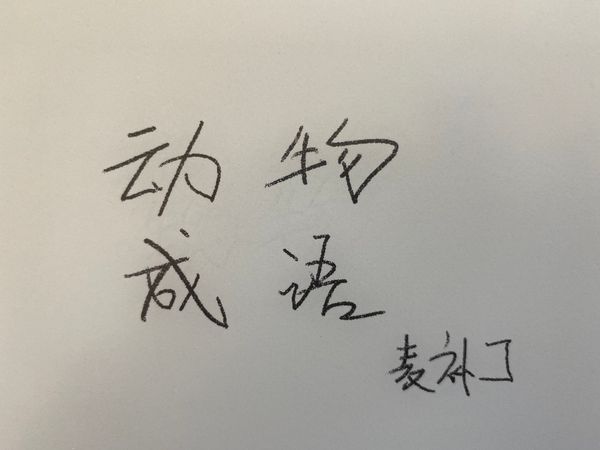 动物
成语
麦补